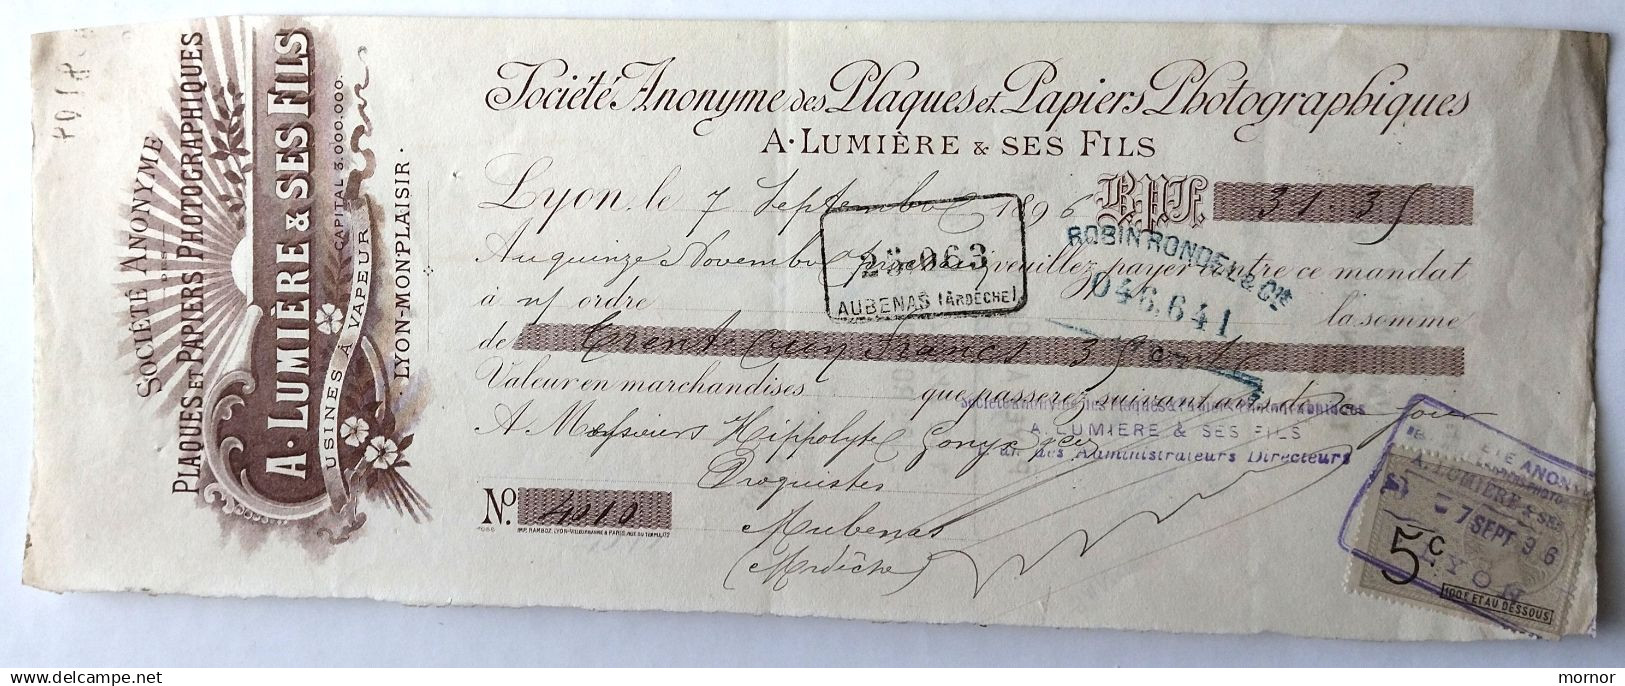 SOCIÉTÉ ANONYME
DES
PLAQUES ET PAPIERS PHOTOGRAPHIQUES
A. LUMIÈRE & SES FILS
CAPITAL 3.000.000.
USINES À VAPEUR
LYON-MONPLAISIR.
Société Anonyme des Plaques et Papiers Photographiques
A. LUMIÈRE & SES FILS
Lyon, le 7 Septembre 1896 B.P.F. 31.35
Au quinze Novembre prochain veuillez payer contre ce mandat
à n/ ordre la somme
de Trente un francs 35 cent
Valeur en marchandises que passerez suivant avis de
A Messieurs Hippolyte
Droguistes
Aubenas
(Ardèche)
No. 4010
IMP. RAMBOZ, LYON-VILLEURBANNE & PARIS, RUE DU TEMPLE, 172
25.063
AUBENAS (ARDÈCHE)
ROBIN RONDEL & Cie
046,641
Société anonyme des Plaques & Papiers Photographiques
A. LUMIERE & SES FILS
L'un des Administrateurs Directeurs
A. LUMIÈRE & SES
7 SEPT 96
LYON
5c
100F ET AU DESSOUS
mornor